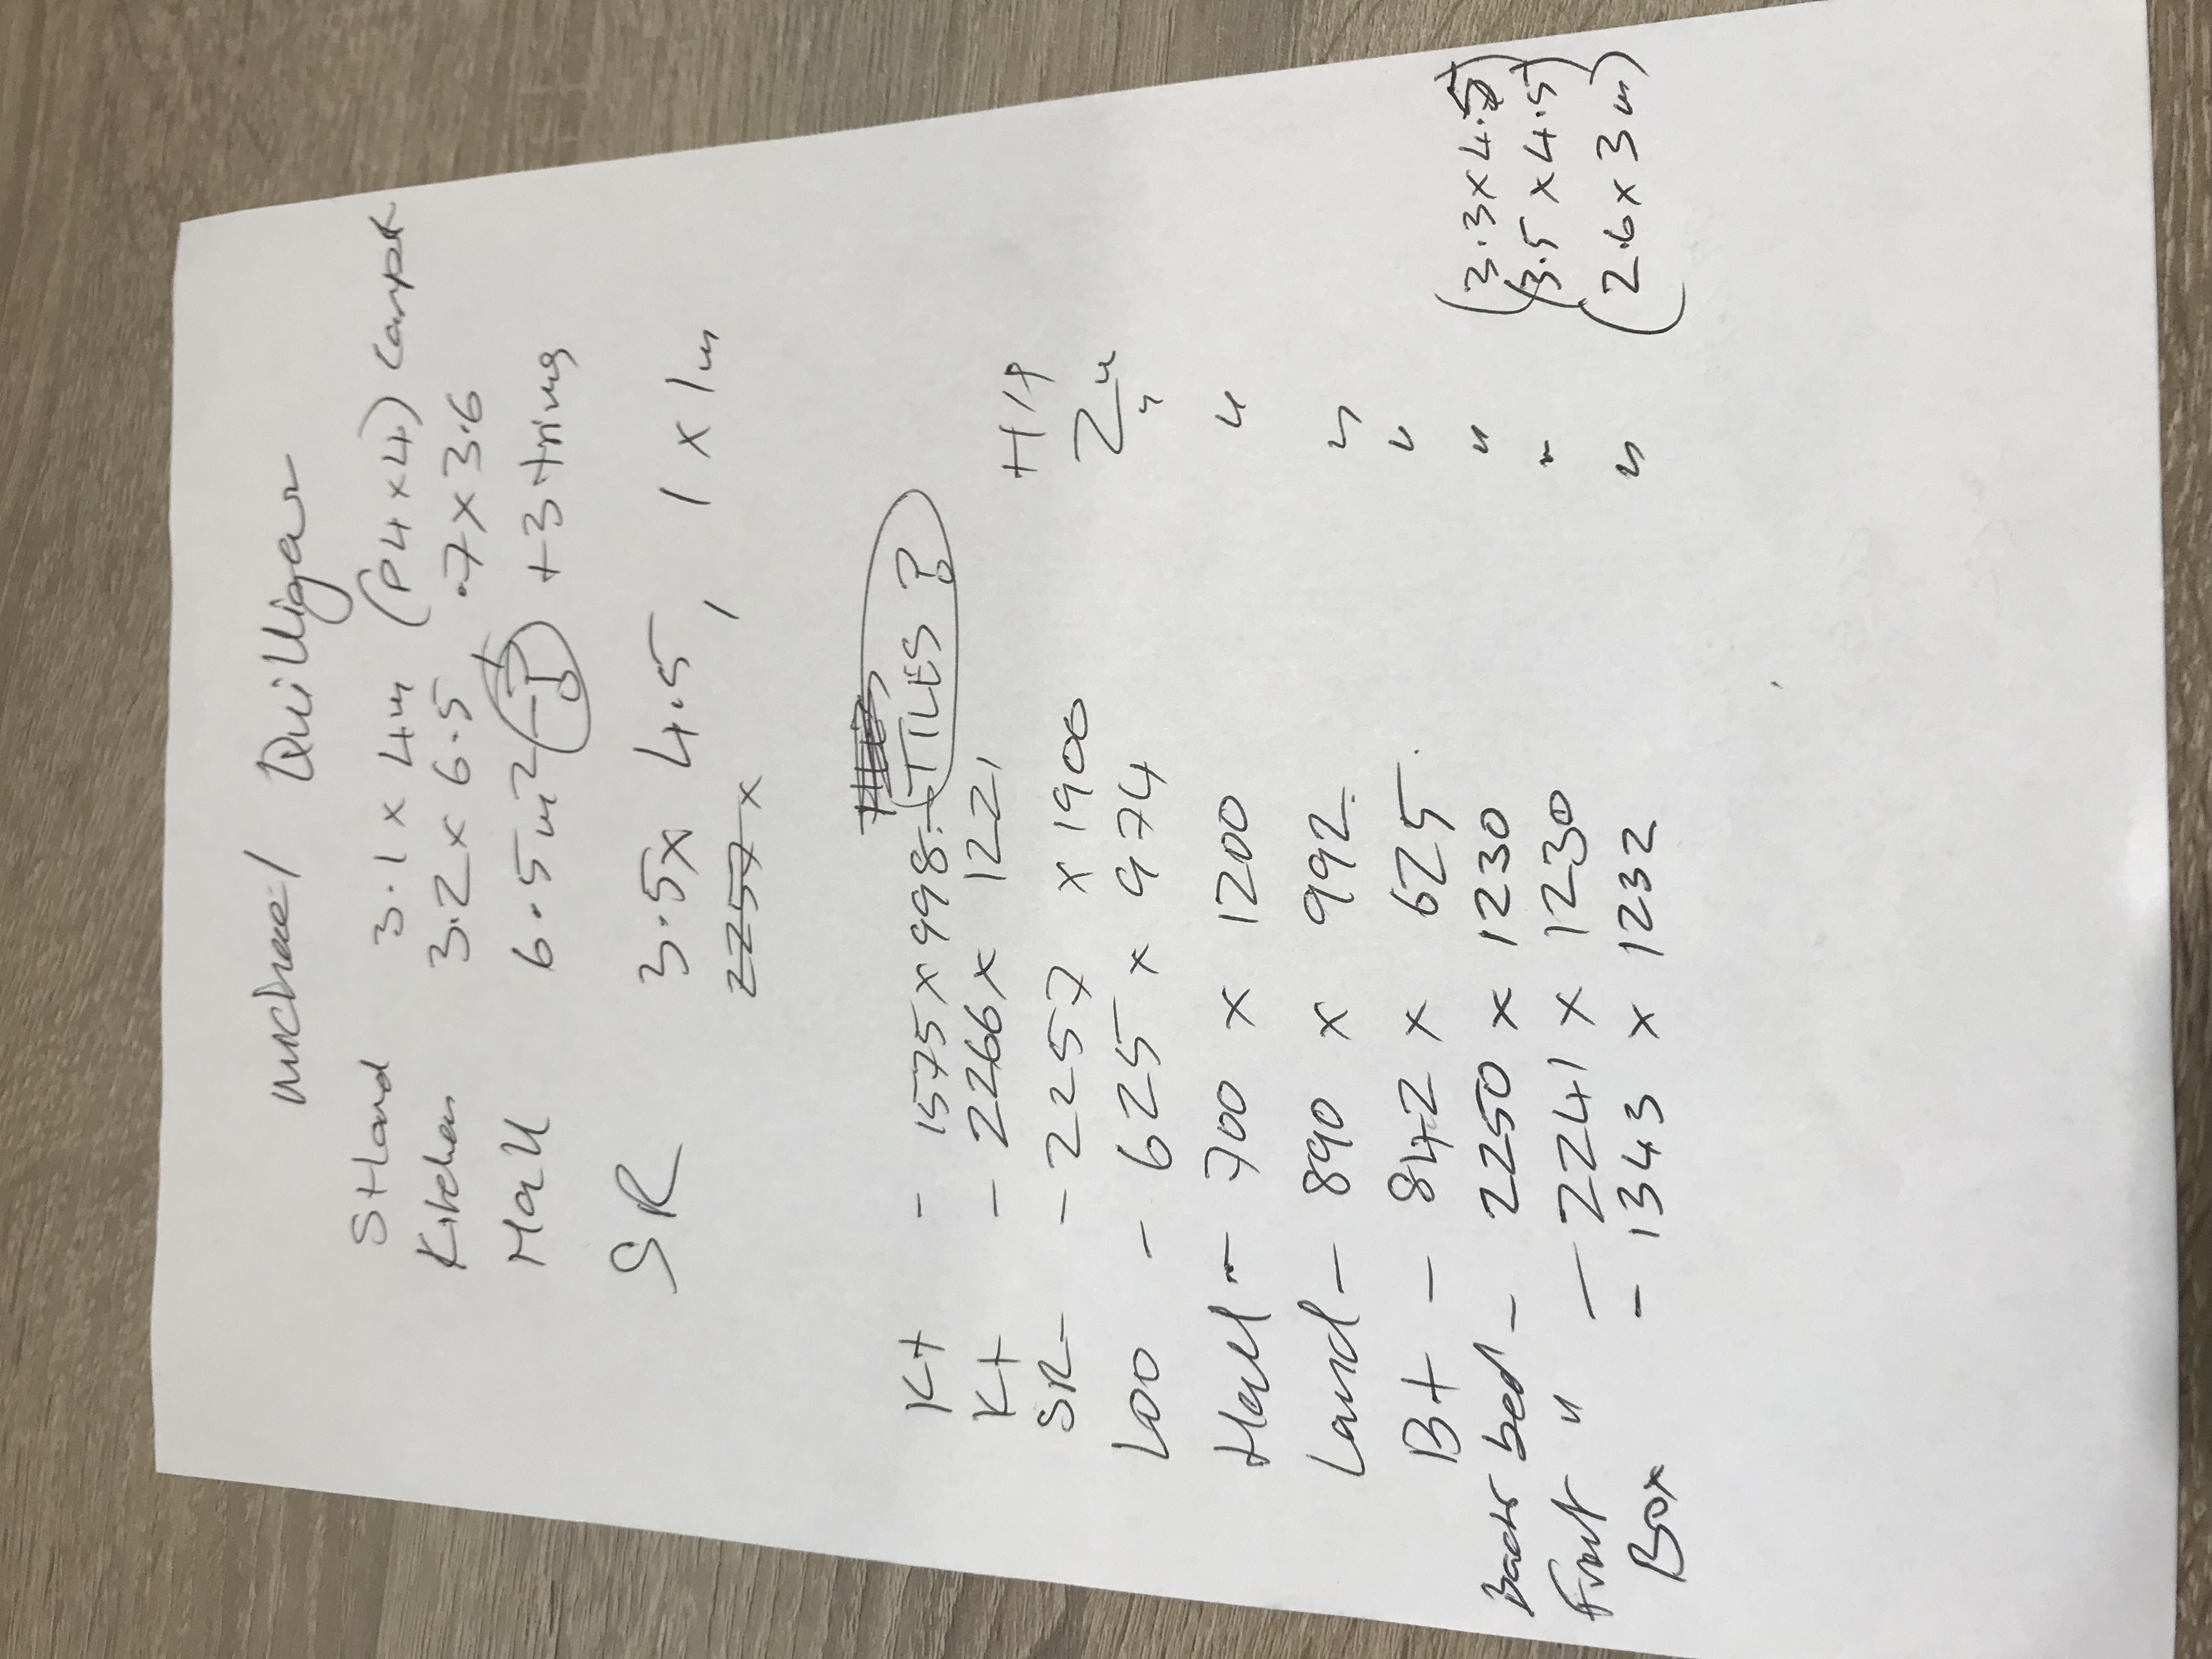 Michael Quilligan
St+Land 3.1 x 4m (P4 x 4) Carpet
Kitchen 3.2 x 6.5 .7 x 3.6
Hall 6.5m2 ? + 3 trims
SR 3.5 x 4.5, 1 x 1m
2257 x
TILES ?
Kt - 1575 x 998.
Kt - 2266 x 1221 H/4
SR - 2257 x 1900 2"
Loo - 625 x 974 "
Hall - 700 x 1200 "
Land - 890 x 992. "
Bt - 842 x 625. "
Back bed - 2250 x 1230 " (3.3 x 4.5)
Front " - 2241 x 1230 " (3.5 x 4.5)
Box - 1343 x 1232 " (2.6 x 3m)